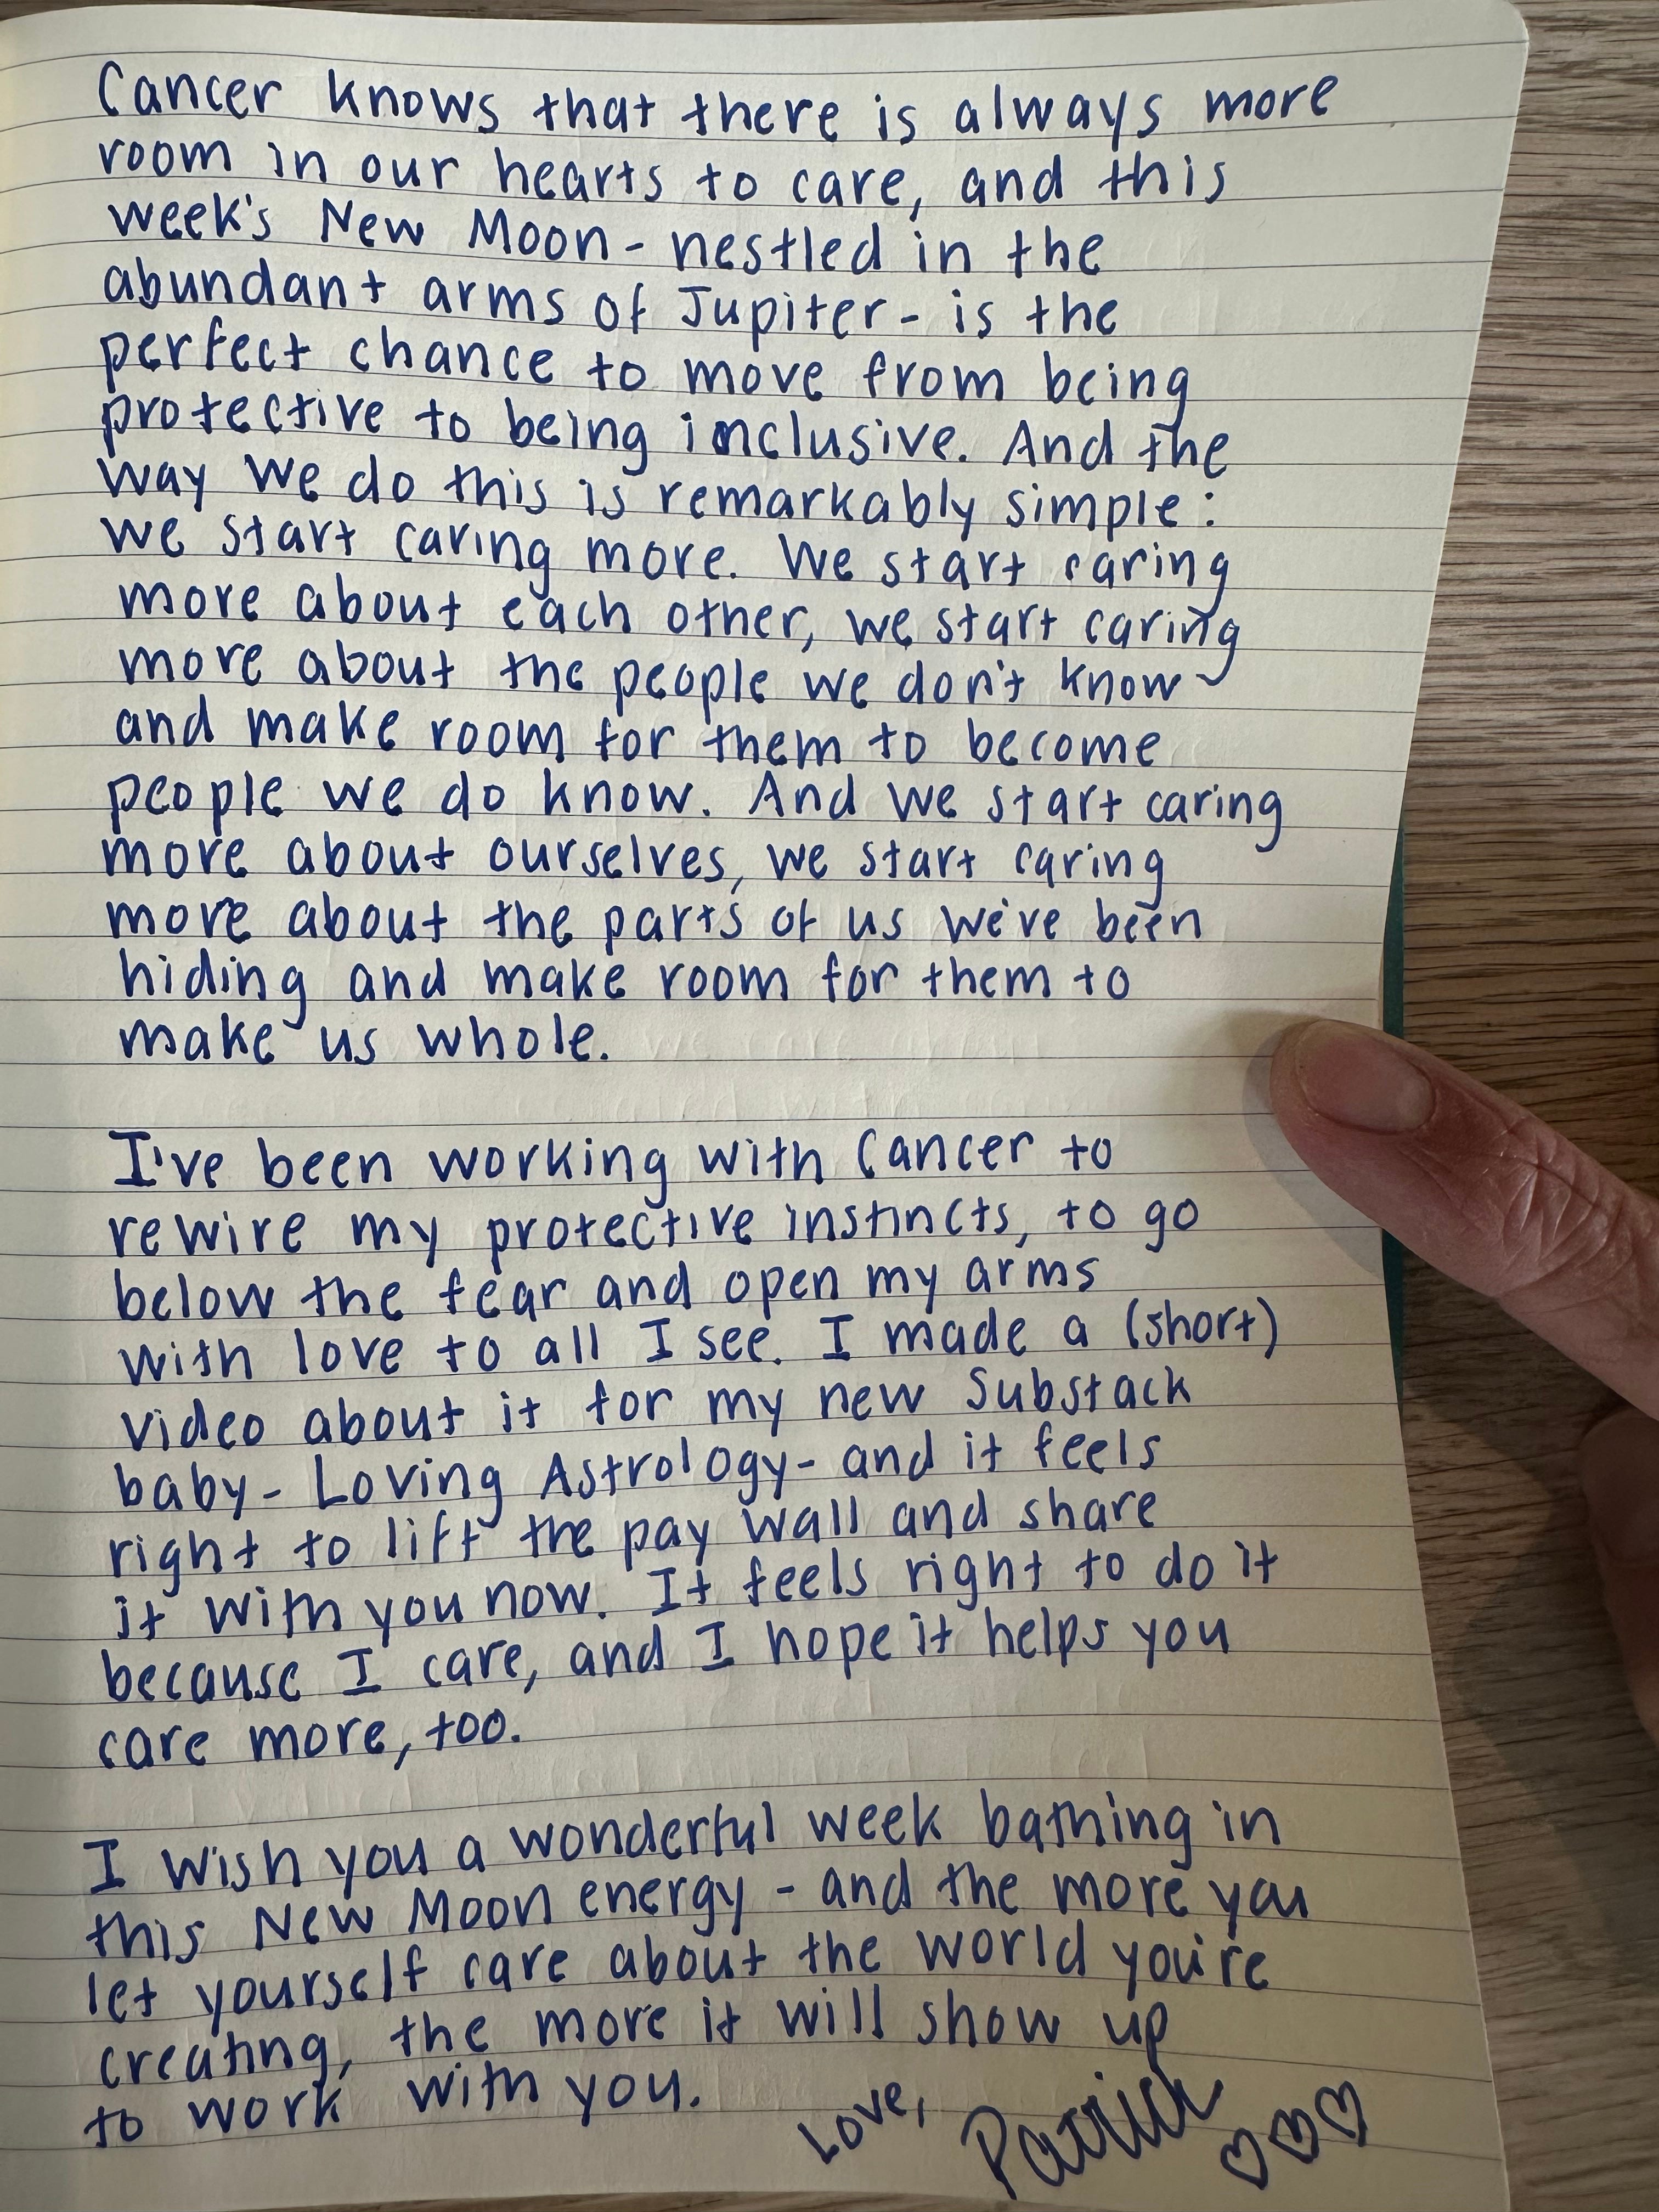 Cancer knows that there is always more
room in our hearts to care, and this
week's New Moon - nestled in the
abundant arms of Jupiter - is the
perfect chance to move from being
protective to being inclusive. And the
way we do this is remarkably simple:
we start caring more. We start caring
more about each other, we start caring
more about the people we don't know
and make room for them to become
people we do know. And we start caring
more about ourselves, we start caring
more about the parts of us we've been
hiding and make room for them to
make us whole.
I've been working with Cancer to
rewire my protective instincts, to go
below the fear and open my arms
with love to all I see. I made a (short)
video about it for my new Substack
baby - Loving Astrology - and it feels
right to lift the pay wall and share
it with you now. It feels right to do it
because I care, and I hope it helps you
care more, too.
I wish you a wonderful week bathing in
this New Moon energy - and the more you
let yourself care about the world you're
creating, the more it will show up
to work with you.
Love, Patrick